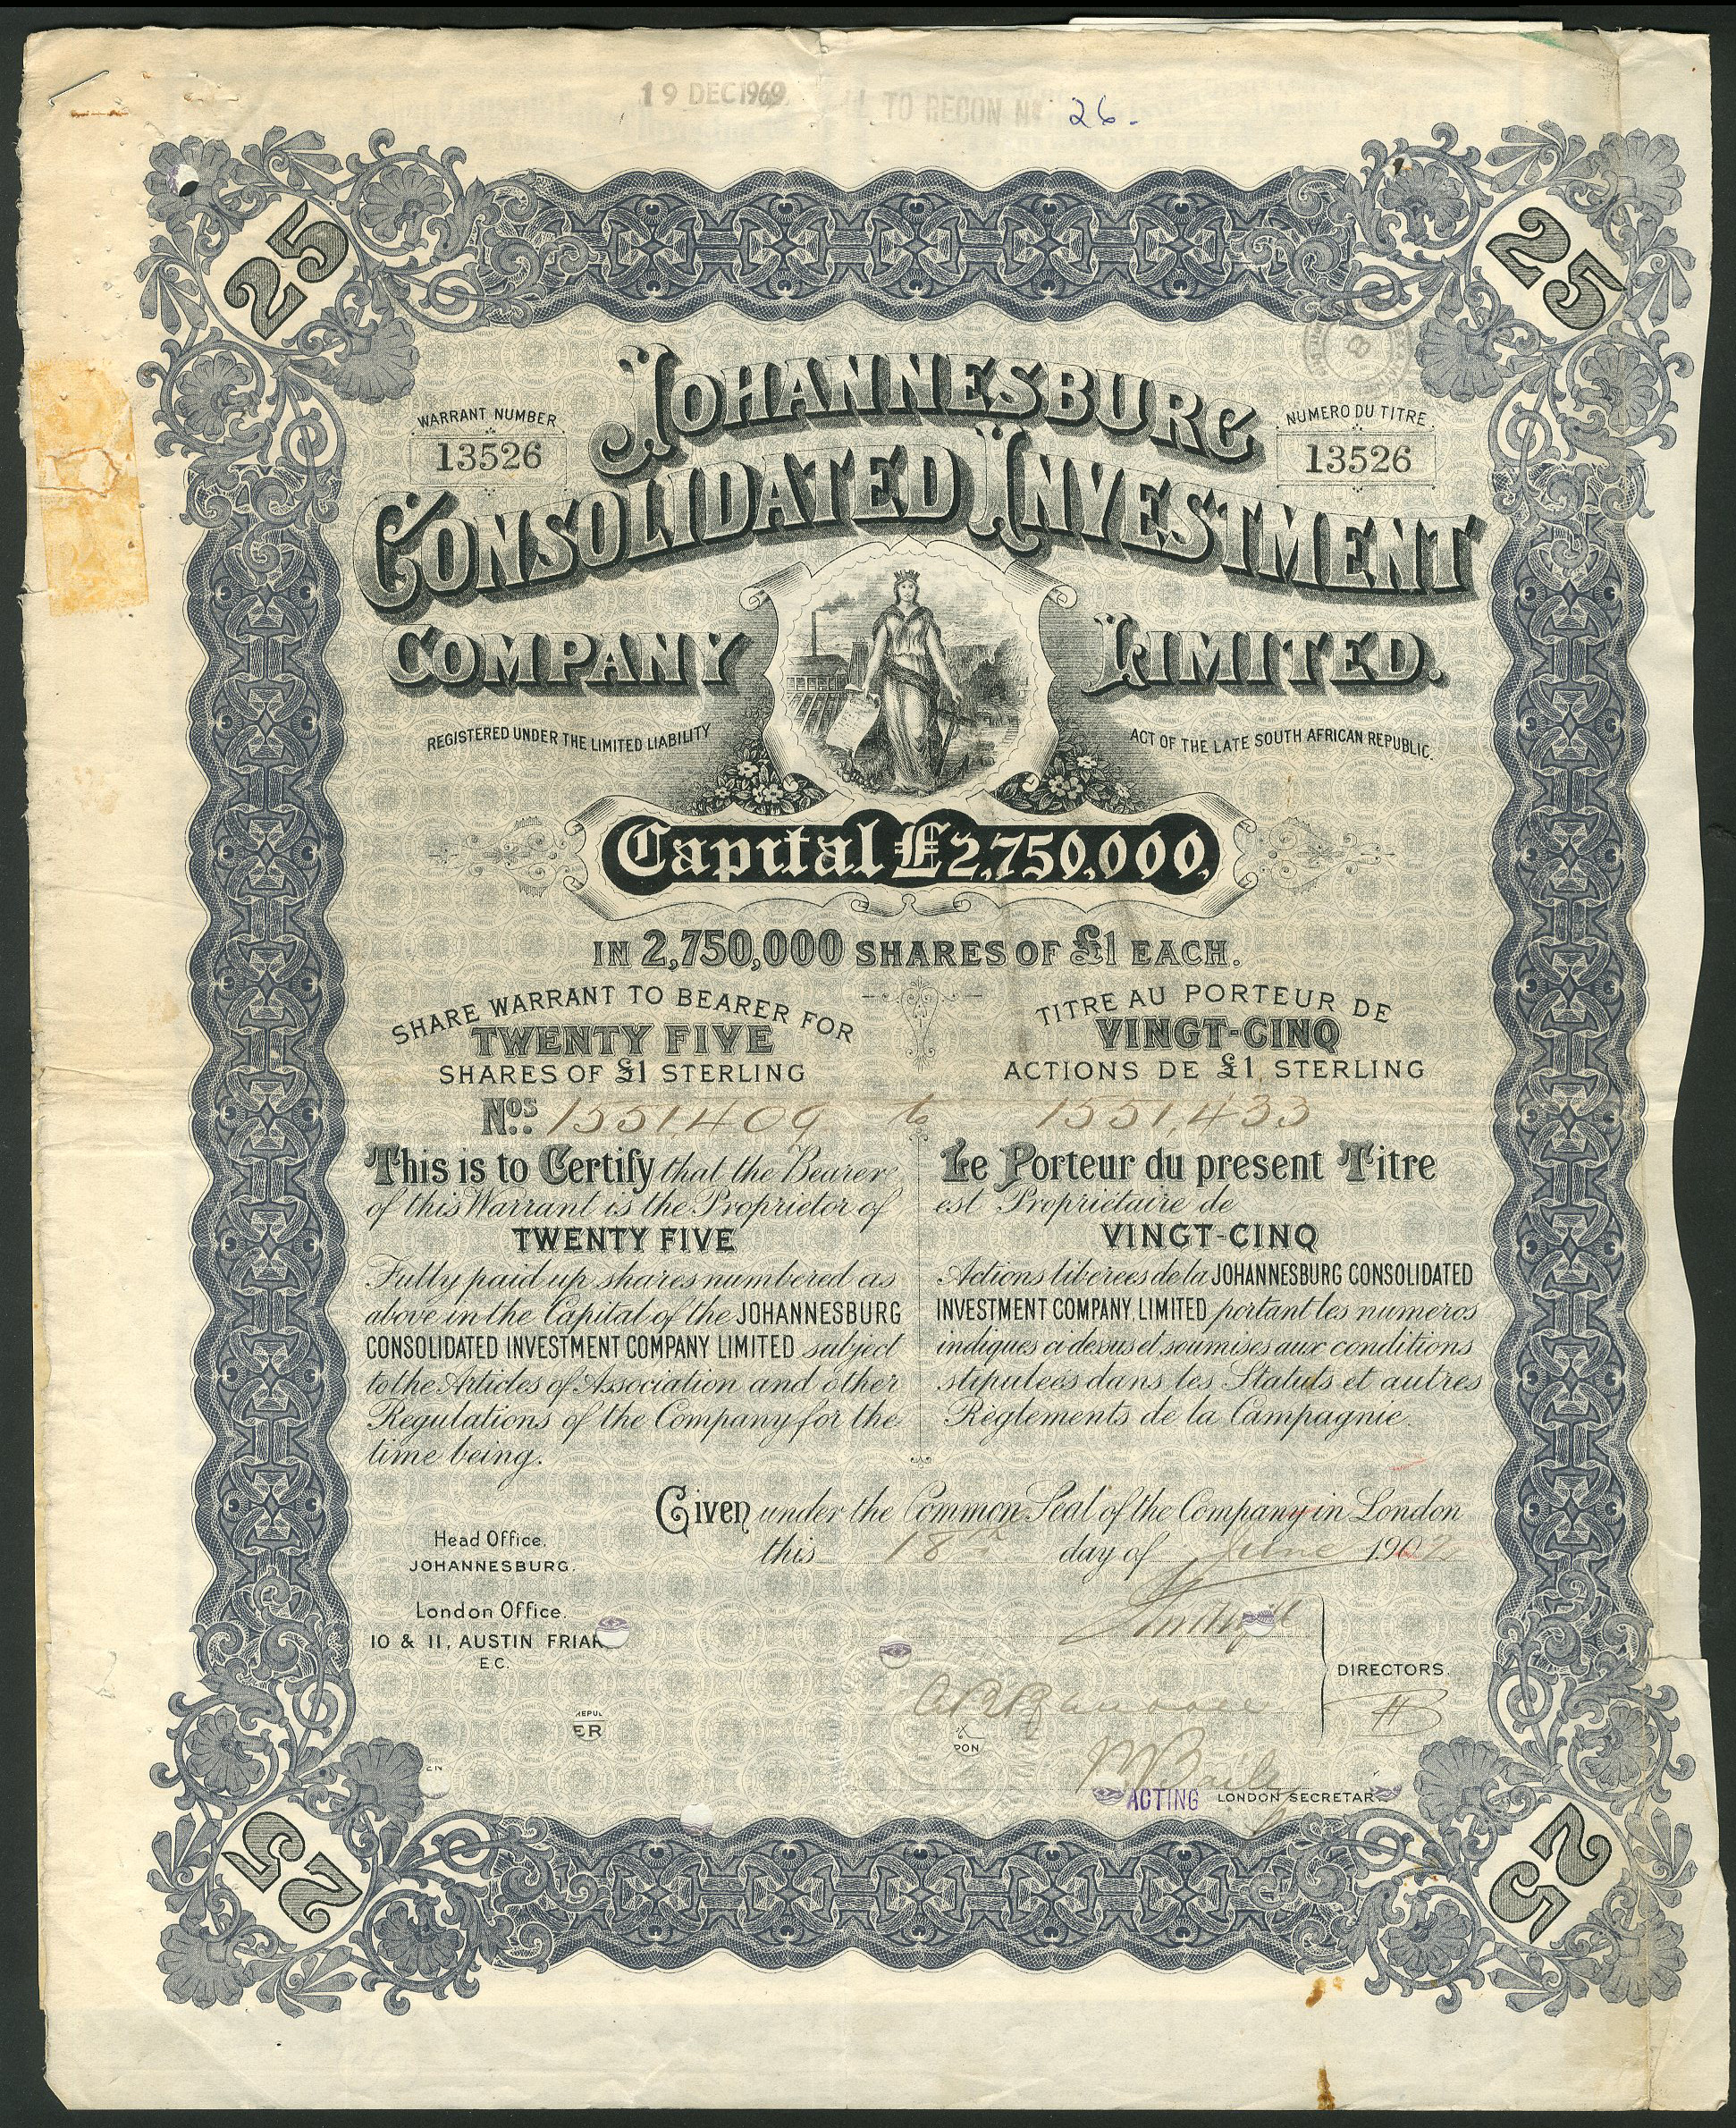 19 DEC 1969
TO RECON No 26.
25
25
WARRANT NUMBER
13526
NUMERO DU TITRE
13526
JOHANNESBURG
CONSOLIDATED INVESTMENT
COMPANY LIMITED.
REGISTERED UNDER THE LIMITED LIABILITY ACT OF THE LATE SOUTH AFRICAN REPUBLIC.
Capital £2,750,000,
IN 2,750,000 SHARES OF £1 EACH.
SHARE WARRANT TO BEARER FOR
TWENTY FIVE
SHARES OF £1 STERLING
TITRE AU PORTEUR DE
VINGT-CINQ
ACTIONS DE £1 STERLING
Nos. 1551,409 to 1551,433
This is to Certify that the Bearer
of this Warrant is the Proprietor of
TWENTY FIVE
Fully paid up shares numbered as
above in the Capital of the JOHANNESBURG
CONSOLIDATED INVESTMENT COMPANY LIMITED subject
to the Articles of Association and other
Regulations of the Company for the
time being.
Le Porteur du present Titre
est Propriétaire de
VINGT-CINQ
Actions libérées de la JOHANNESBURG CONSOLIDATED
INVESTMENT COMPANY, LIMITED portant les numeros
indiques ci dessus et soumises aux conditions
stipulées dans les Statuts et autres
Règlements de la Campagnie.
Given under the Common Seal of the Company in London
this 18th day of June 1902
Head Office.
JOHANNESBURG.
London Office.
10 & 11, AUSTIN FRIAR
E.C.
DIRECTORS.
REPU
ER
PON
EN
ACTING LONDON SECRETAR
25
25